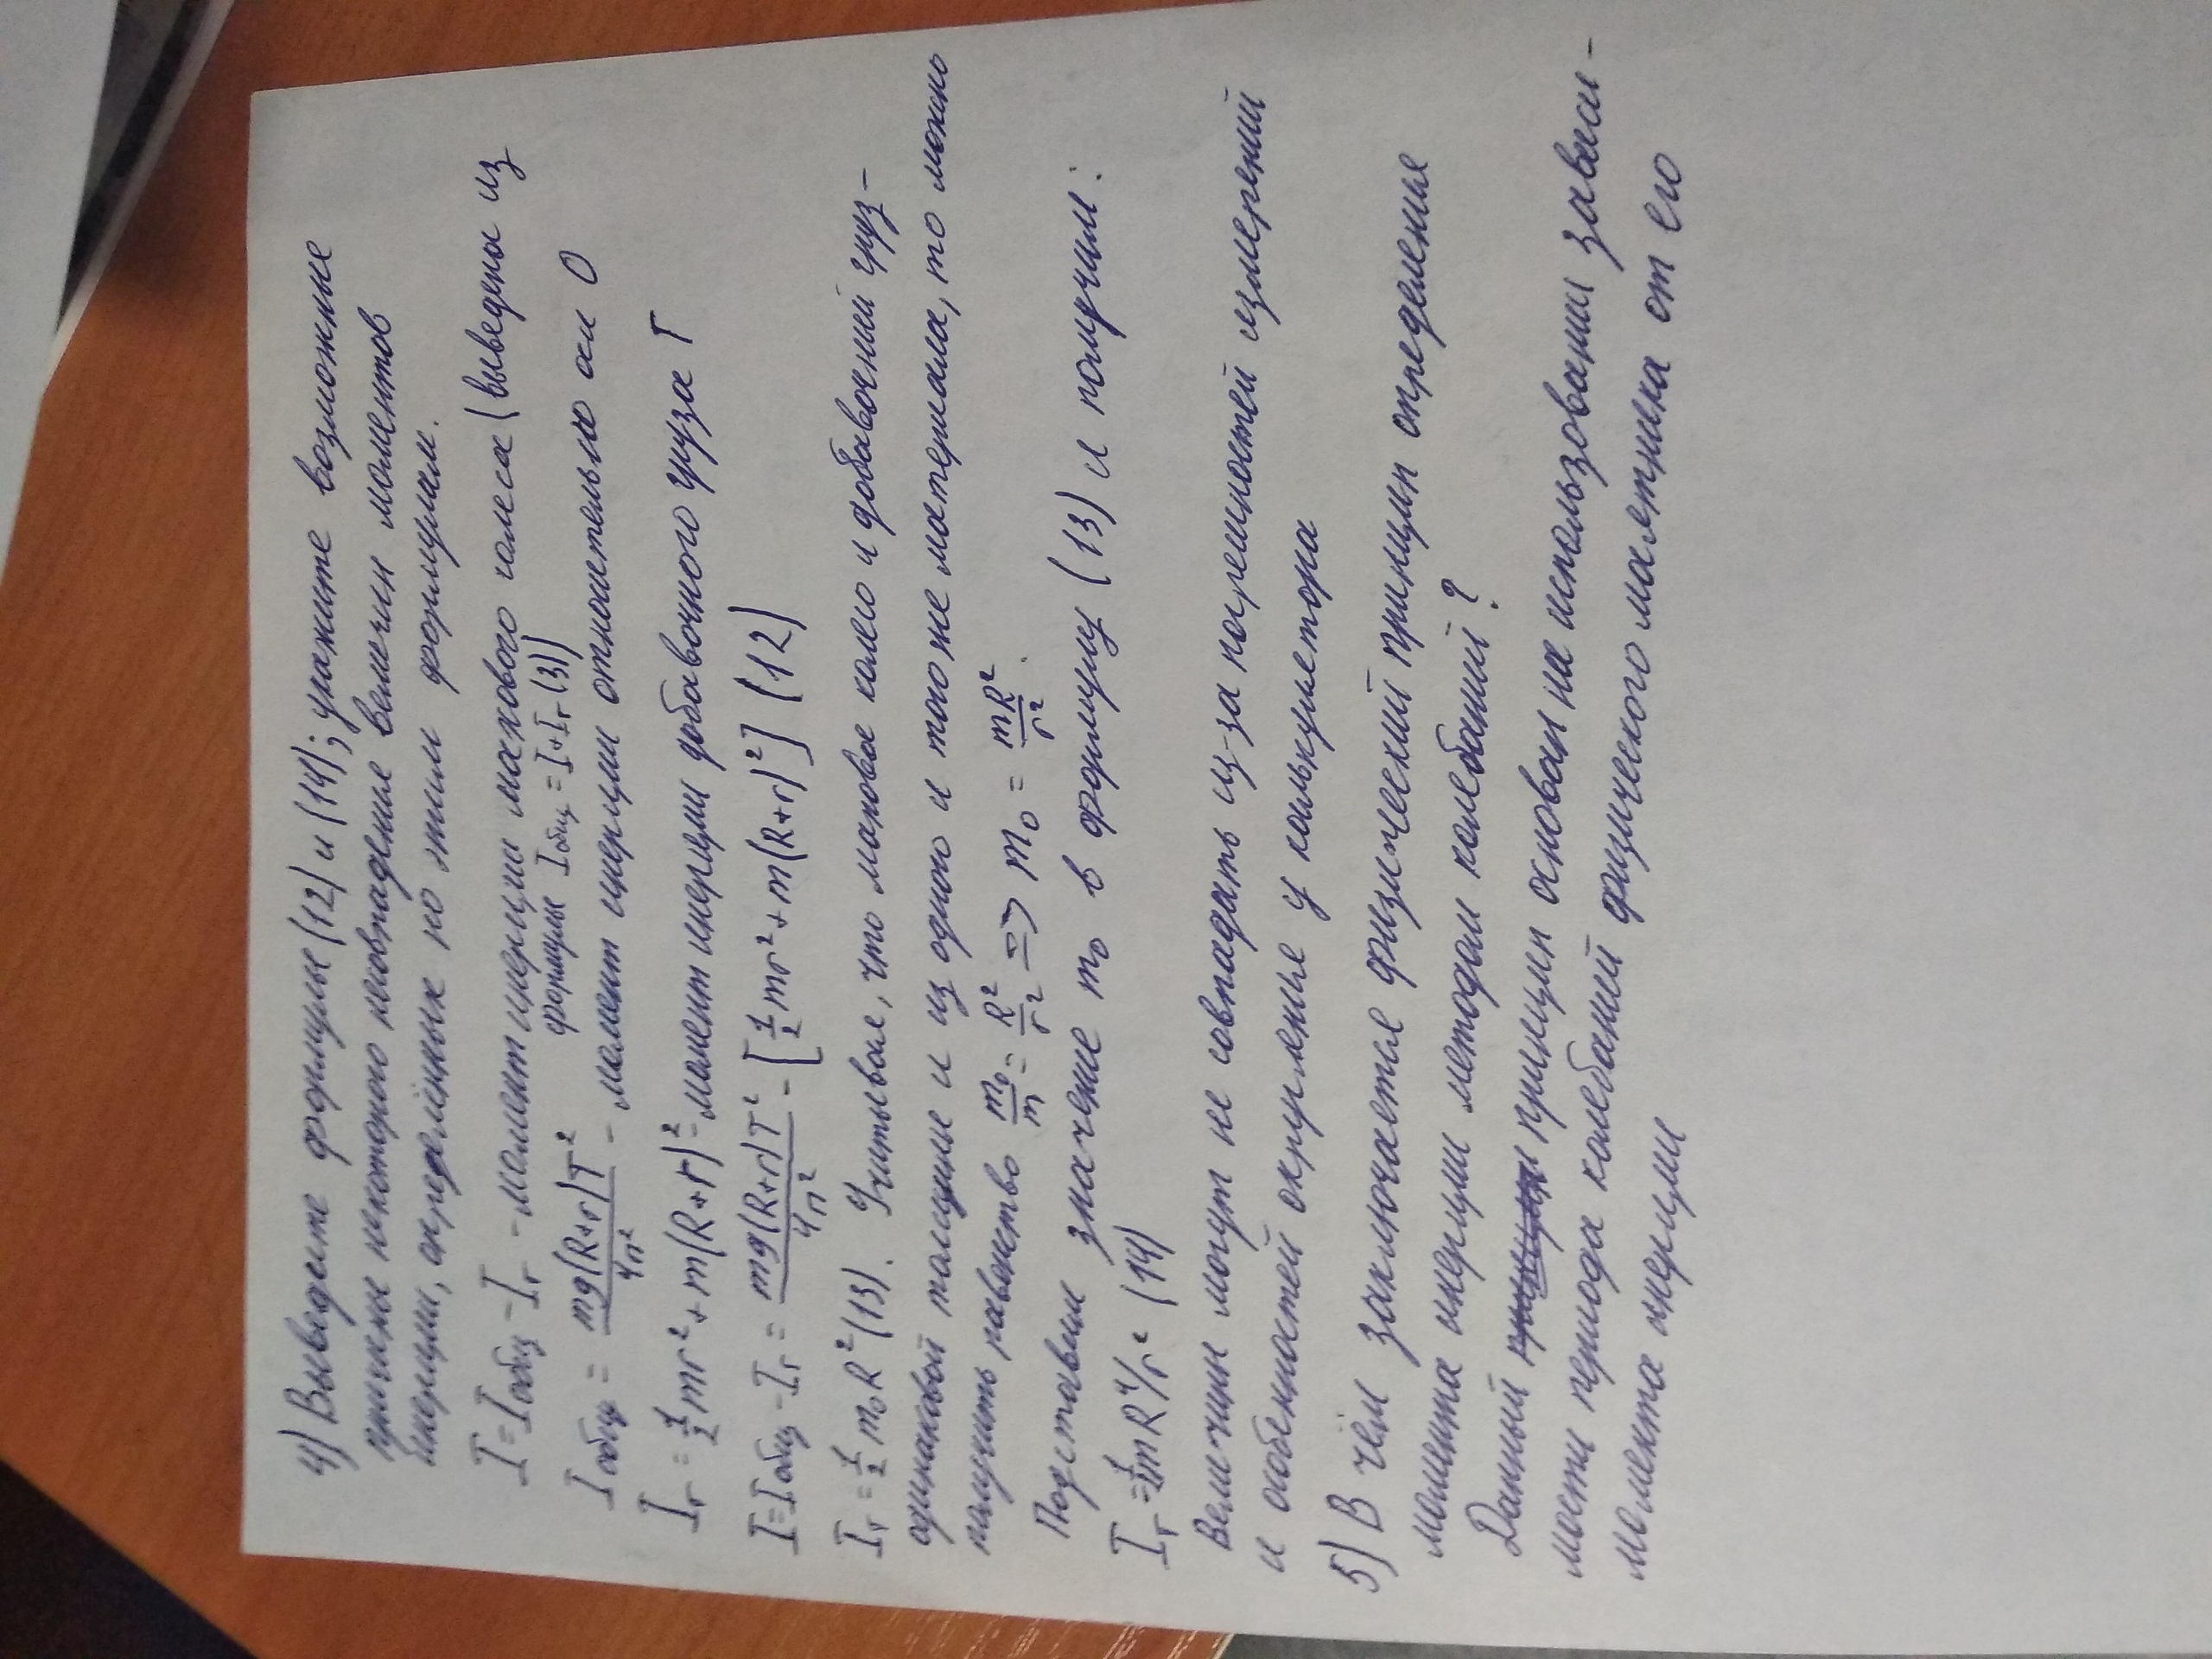 4) Выведите формулы (12) и (14); укажите возможные
причины некоторого несовпадения величин моментов
инерции, определённых по этим формулам.
I=Iобщ -Iг - момент инерции махового колеса (выведена из
формулы Iобщ = I+Iг (3))
Iобщ = mg(R+r)T²/4π² - момент инерции относительно оси O
Iг = 1/2 mr² + m(R+r)² - момент инерции добавочного груза Г
I=Iобщ -Iг = mg(R+r)T²/4π² - [1/2 mr² + m(R+r)²] (12)
Iг = 1/2 m₀R² (13). Учитывая, что маховое колесо и добавочный груз -
одинаковой толщины и из одного и того же материала, то можно
получить равенство m₀/m = R²/r² => m₀ = mR²/r².
Подставим значение m₀ в формулу (13) и получим:
Iг = 1/2 mR⁴/r² (14)
Величины могут не совпадать из-за погрешностей измерений
и особенностей округления у калькулятора
5) В чём заключается физический принцип определения
момента инерции методом колебаний?
Данный принцип основан на использовании зависи-
мости периода колебаний физического маятника от его
момента инерции